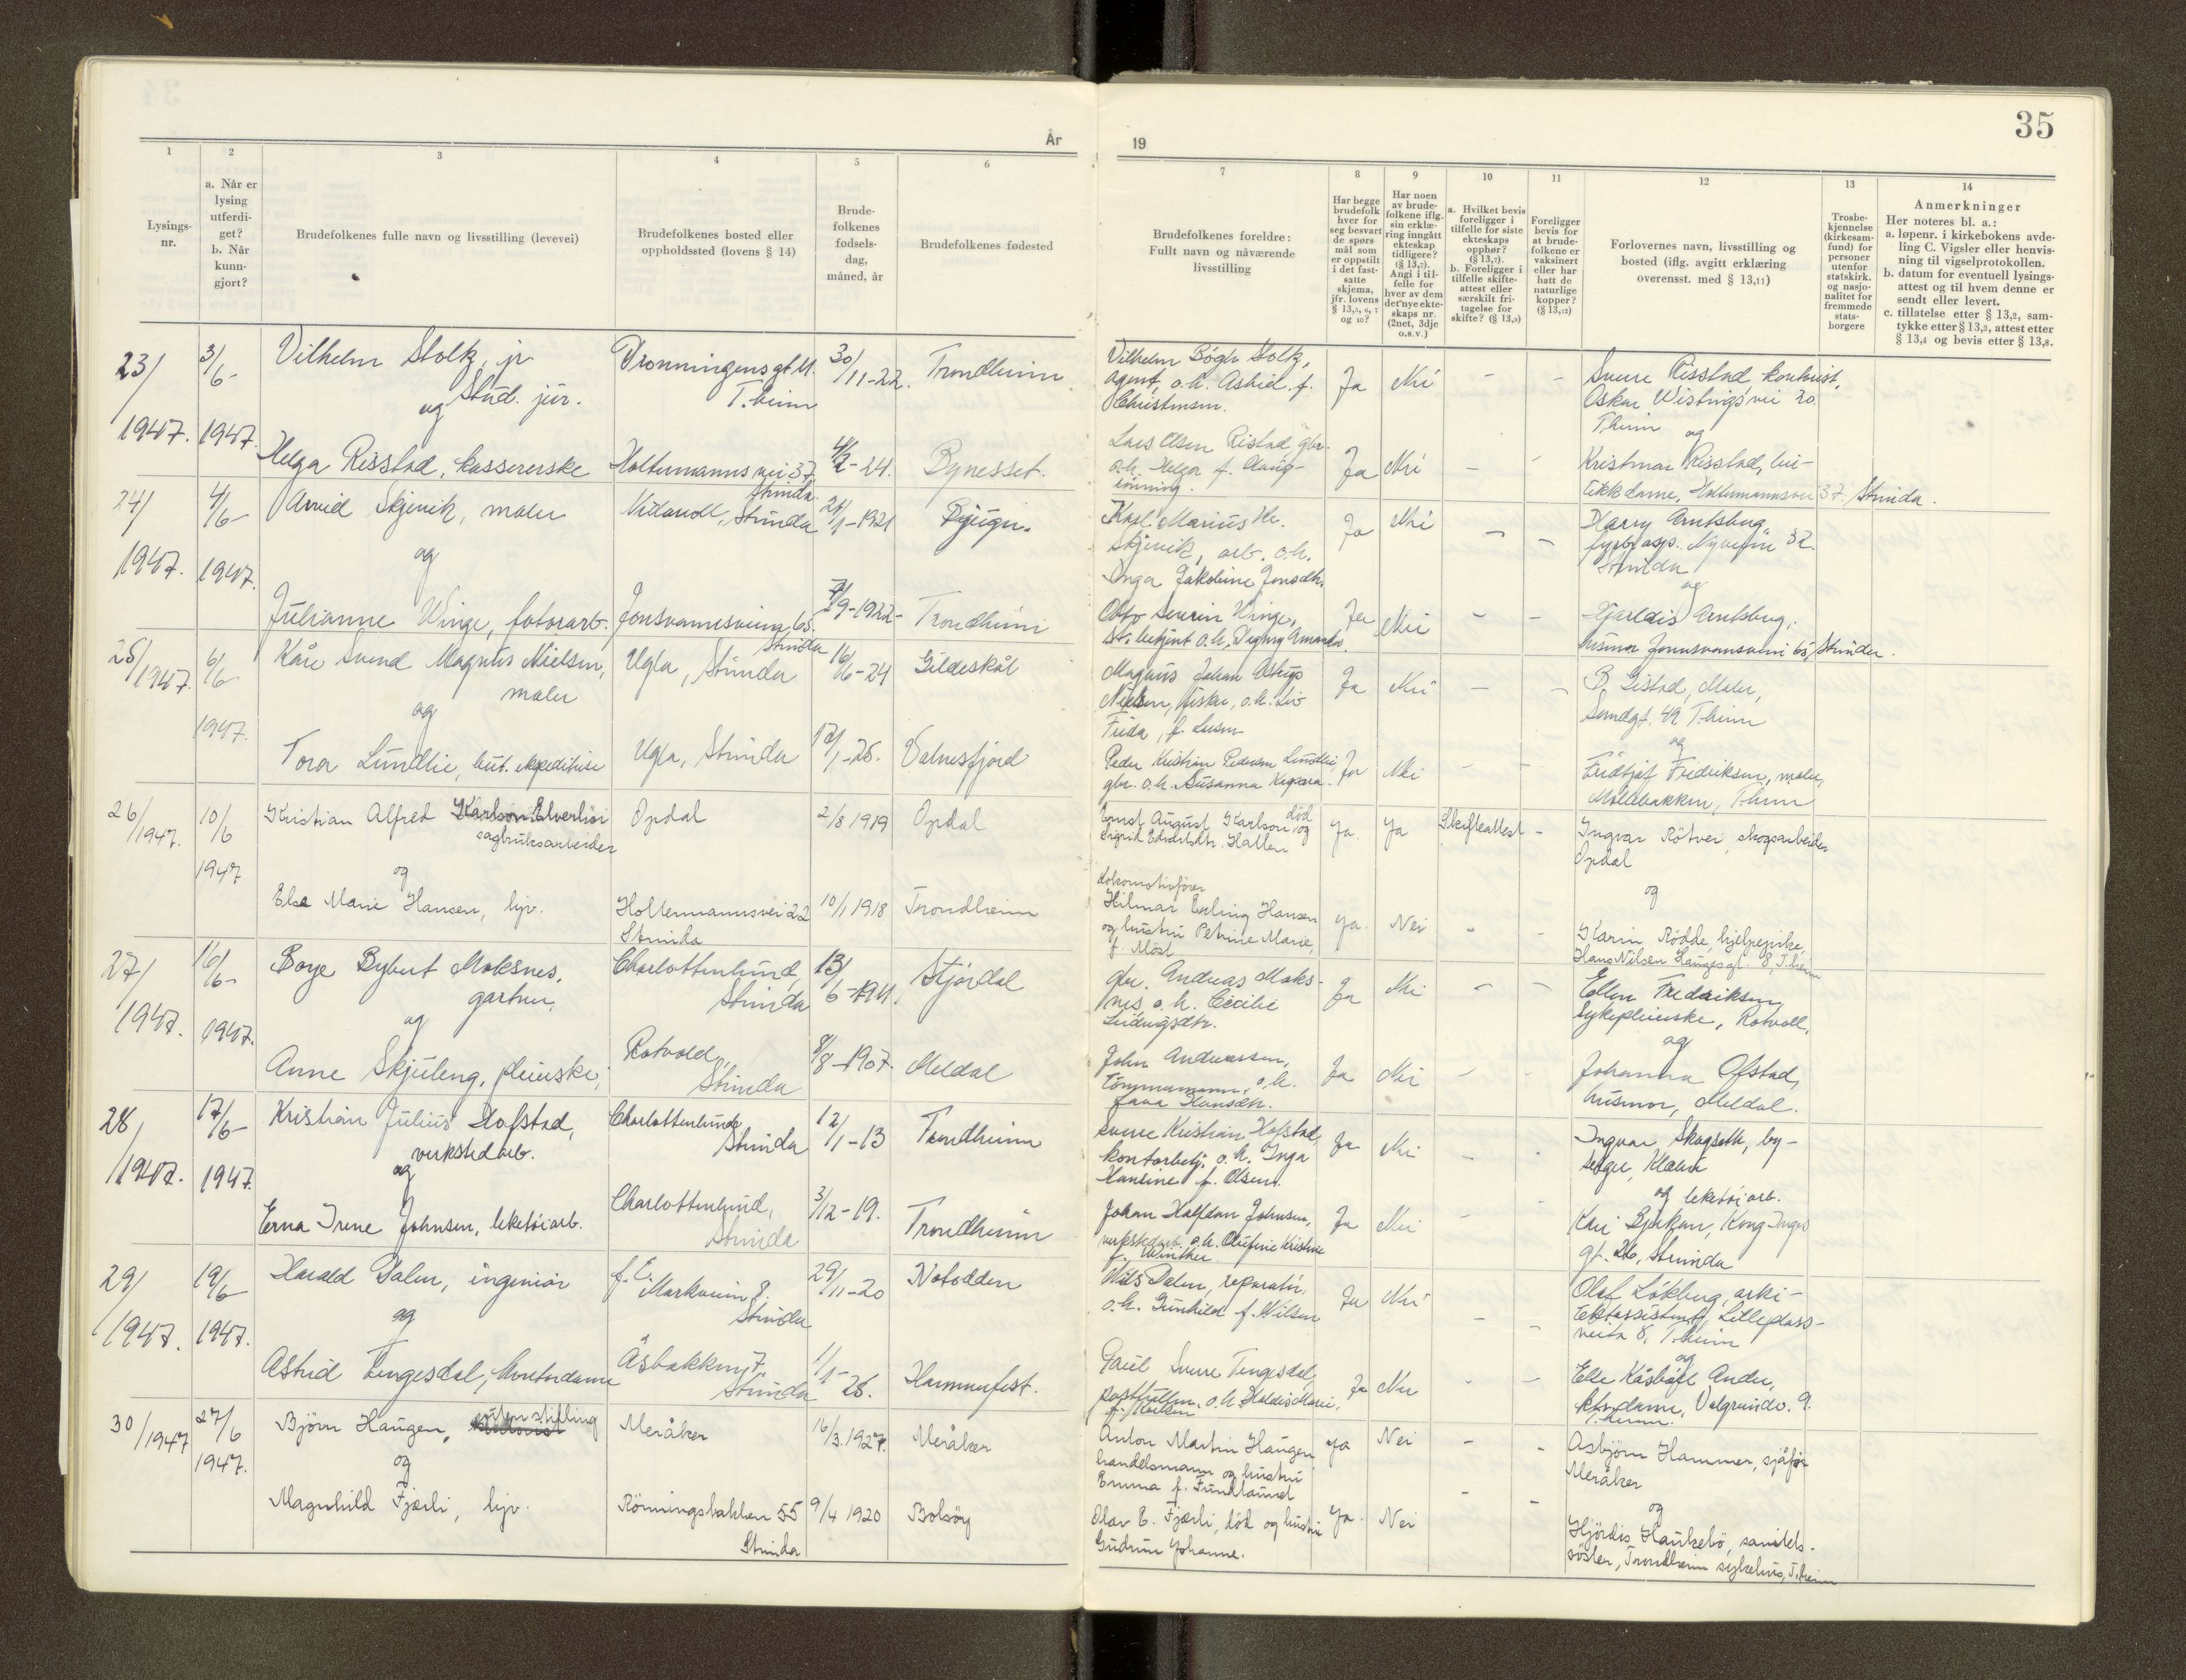 35
År
19
1
2
3
4
5
6
7
8
9
10
11
12
13
14
Lysings-
nr.
a. Når er
lysing
utferdi-
get?
b. Når
kunn-
gjort?
Brudefolkenes fulle navn og livsstilling (levevei)
Brudefolkenes bosted eller
oppholdssted (lovens § 14)
Brude-
folkenes
fødsels-
dag,
måned, år
Brudefolkenes fødested
Brudefolkenes foreldre:
Fullt navn og nåværende
livsstilling
Har begge
brudefolk
hver for
seg besvart
de spørs
mål som
er oppstilt
i det fast-
satte
skjema,
jfr. lovens
§ 13,5, 6, 7
og 10?
Har noen
av brude-
folkene iflg.
sin erklæ-
ring inngått
ekteskap
tidligere?
(§ 13,7).
Angi i til-
felle for
hver av dem
det nye ekte-
skaps nr.
(2net, 3dje
o.s.v.)
a. Hvilket bevis
foreligger i
tilfelle for siste
ekteskaps
opphør?
(§ 13,7).
b. Foreligger i
tilfelle skifte-
attest eller
særskilt fri-
tagelse for
skifte? (§ 13,9)
Foreligger
bevis for
at brude-
folkene er
vaksinert
eller har
hatt de
naturlige
kopper?
(§ 13,12)
Forlovernes navn, livsstilling og
bosted (iflg. avgitt erklæring
overensst. med § 13,11)
Trosbe-
kjennelse
(kirkesam-
fund) for
personer
utenfor
statskirk.
og nasjo-
nalitet for
fremmede
stats-
borgere
Anmerkninger
Her noteres bl. a.:
a. løpenr. i kirkebokens avde-
ling C. Vigsler eller henvis-
ning til vigselprotokollen.
b. datum for eventuell lysings-
attest og til hvem denne er
sendt eller levert.
c. tillatelse etter § 13,2, sam-
tykke etter § 13,3, attest etter
§ 13,4 og bevis etter § 13,8.
23/
1947.
3/6-
1947.
Vilhelm Stoltz, jr.
Stud. jur.
og
Helga Risstad, kassererske
Dronningensgt 11.
T.heim
Holtermanns vei 37
Strinda.
30/11-22.
4/2-24.
Trondheim
Bynesset.
Vilhelm Bøgh Stoltz,
agent, o.h. Astrid f.
Christensen.
Lars Olsen Ristad gbr.
o.h. Helga f.
Ja
Nei
-
-
Ja
Nei
-
-
Sverre Risstad, kontorist,
Oskar Wistings vei 20.
T.heim og
Kristmar Risstad, bu-
tikkdame, Holtermannsvei 37, Strinda.
24/
1947.
4/6-
1947.
Arvid Skjevik, maler
og
Julianne Winge, fotoarb.
Strinda
Jonsvannsveien 65.
Strinda
/1-1921
7/9-1922-
Bjugn.
Trondheim
Karl Marius
Skjevik, arb. o.h.
Inga Jakobine Jonsdtr.
Otto Severin Winge,
st. betjent o.h. Dagny Amanda.
Ja
Nei
-
-
Ja
Nei
-
-
Harry Arntsberg,
32.
Strinda
og
Arntsberg,
husmor Jonsvannsveien 65, Strinda.
25/
1947.
6/6-
1947.
Kåre Svend Magnus Nielsen,
maler
og
Tora Lundlie, but. ekspeditrise
Ugla, Strinda
Ugla, Strinda
16/6-24
12/1-26.
Gildeskål
Valnesfjord
Magnus Johan
Nielsen, fisker, o.h. Liv
Frida, f.
Peder Kristian Pedersen Lundlie,
gbr. o.h. Susanna
Ja
Nei
-
-
Ja
Nei
-
-
B. Gistad, Maler,
49 T.heim
og
Fridtjof Fredriksen, maler,
Møllebakken, T.heim
26/
1947.
10/6
1947
Kristian Alfred Karlson Elverhøi
sagbruksarbeider
og
Else Marie Hansen, hjv.
Opdal
Holtermannsvei 22
Strinda
2/8 1919
10/1 1918
Opdal
Trondheim
Ernst August Karlson, død og
Sigrid Edvardsdtr. Hallen
Lokomotivfører
Hilmar Erling Hansen
og hustru Petrine Marie,
f. Möst
Ja.
Ja
Skifteattest
-
Ja.
Nei
-
-
Ingvar Rötvei, skogsarbeider
Opdal
og
Karin Rödde, hjelpepike,
Hans Nilsen Haugesgt. 8, T.heim
27/
1947.
16/6-
1947.
Boye Bybert Moksnes,
gartner,
og
Anne Skjuleng, pleierske,
Charlottenlund,
Strinda
Rotvold,
Strinda
13/6-1911.
8/8-1907.
Stjørdal
Meldal
gbr. Andreas Moks-
nes o.h. Cecilie
Ludvigsdtr.
John Anderssen,
tømmermann, o.h.
Hansdtr.
Ja
Nei
-
-
Ja
Nei
-
-
Ellen Fredriksen,
sykepleierske, Rotvoll,
og
Johanna Ofstad,
husmor, Meldal.
28/
1947.
17/6-
1947.
Kristian Julius Hofstad,
verkstedarb.
og
Erna Irene Johnsen, leketøiarb.
Charlottenlund
Strinda
Charlottenlund,
Strinda
12/1-13
3/12-19.
Trondheim
Trondheim
Sverre Kristian Hofstad,
kontorbetj. o.h. Inga
Hansine f. Olsen.
Johan Halfdan Johnsen,
verkstedarb. o.h. Olufine Kristine
f. Winther.
Ja
Nei
-
-
Ja
Nei
-
-
Ingvar Skogseth, by-
Klæbu
og leketøiarb.
Kari Bjerkan, Kong Inges
gt. 26, Strinda
29/
1947.
19/6-
1947.
Harald Dalen, ingeniør
og
Astrid Tengesdal, kontordame
f. E.
Markveien 8.
Strinda
Åsbakken 7,
Strinda
29/11-20
1/1-26.
Notodden
Hammerfest.
Nils Dalen, reparatør,
o.h. Gunhild f. Nilsen
Paul Sverre Tengesdal,
postfullm. o.h. Haldis Marie,
f.
Ja
Nei
-
-
Ja
Nei
-
-
Olaf Løkberg, arki-
tektassistent, Lilleplass-
veita 8. T.heim
og
Else Ander,
ktrdame, Valgrindv. 9.
T.heim.
30/
1947
27/6
1947.
Björn Haugen, uten stilling
og
Magnhild Fjærli, hjv.
Meråker
Rönningsbakken 55
Strinda
16/3.1927.
9/4 1920
Meråker
Bolsöy
Anton Martin Haugen
handelsmann og hustru
Emma f. Fundtaunet
Olav E. Fjærli, död og hustru
Gudrun Johanne.
Ja
Nei
-
-
Ja.
Nei
-
-
Asbjörn Hammer, sjåför
Meråker
og
Hjördis Haukebö, sanitets-
söster, Trondheim sykehus, T.heim